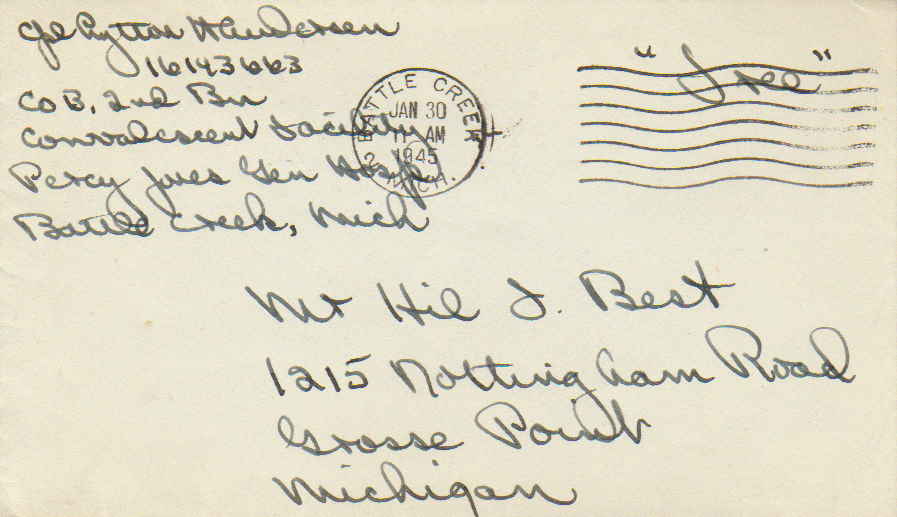 Cpl Lytton H Andersen
16143663
Co B, 2nd Bn
Convalescent Facility
Percy Jones Gen Hosp
Battle Creek, Mich
BATTLE CREEK
JAN 30
11 AM
1945
2 MICH.
"Free"
Mr Hil F. Best
1215 Nottingham Road
Grosse Point
Michigan